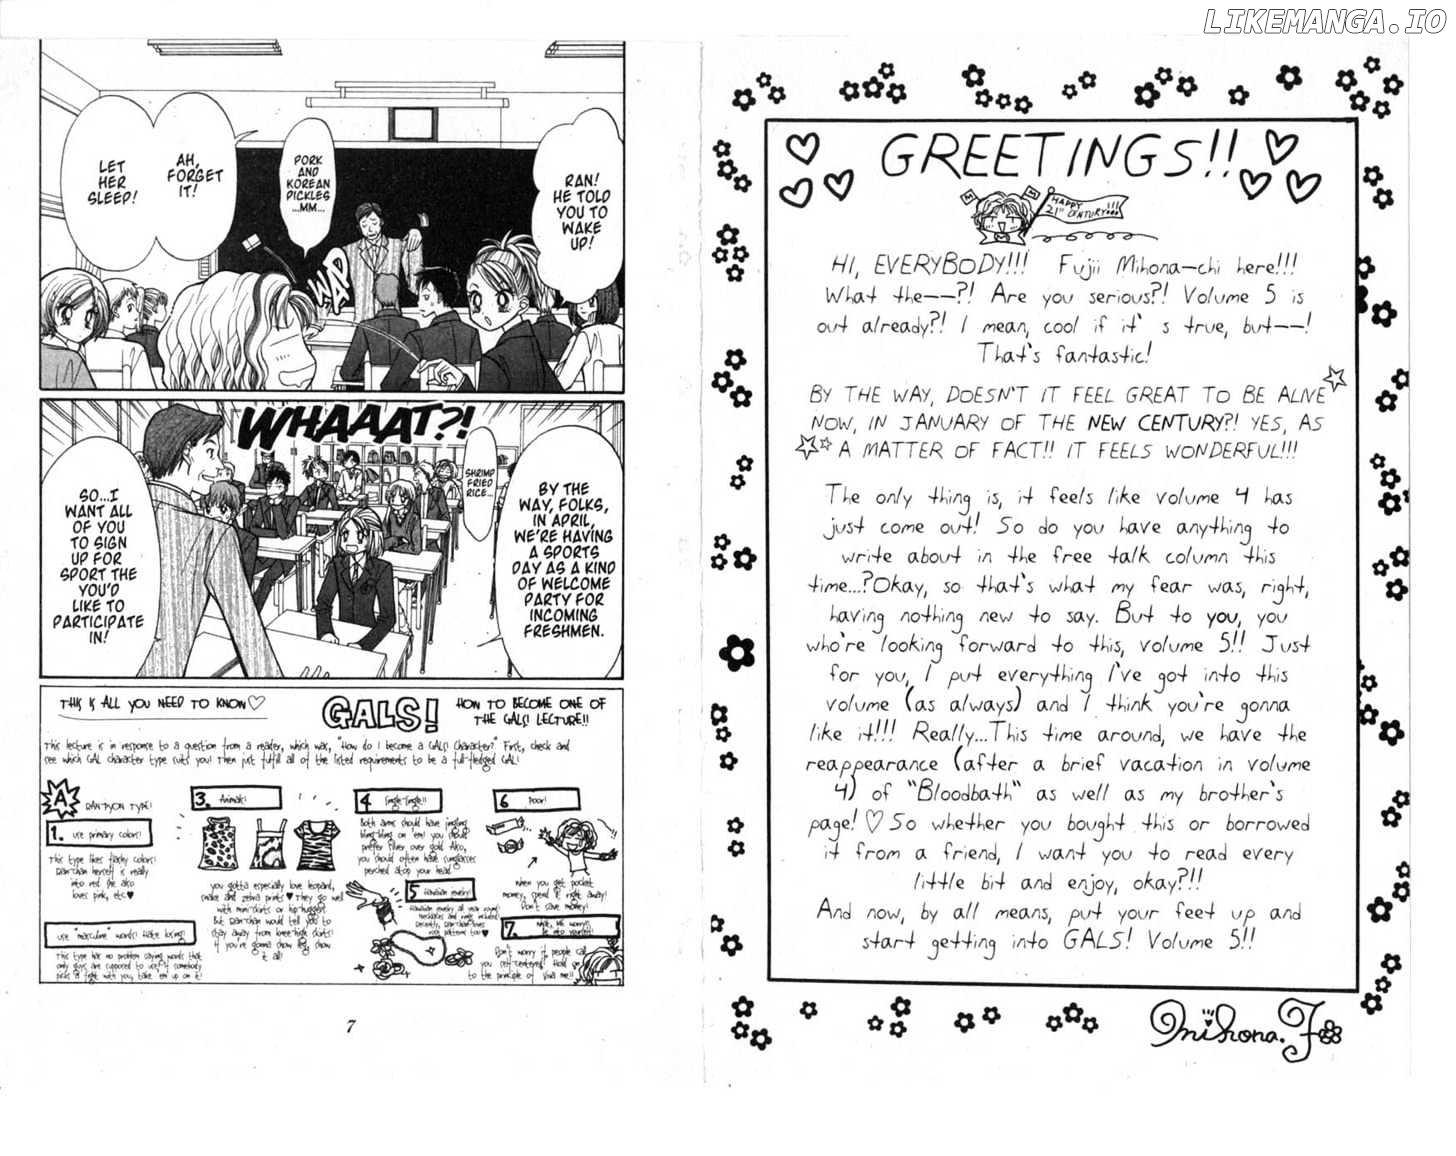 LIKEMANGA.IO
RAN!
HE TOLD
YOU TO
WAKE
UP!
PORK
AND
KOREAN
PICKLES
...MM...
AH,
FORGET
IT!
LET
HER
SLEEP!
WAP
WHAAAT?!
BY THE
WAY, FOLKS,
IN APRIL,
WE'RE HAVING
A SPORTS
DAY AS A KIND
OF WELCOME
PARTY FOR
INCOMING
FRESHMEN.
SHRIMP
FRIED
RICE...
SO...I
WANT ALL
OF YOU
TO SIGN
UP FOR
SPORT THE
YOU'D
LIKE TO
PARTICIPATE
IN!
THIS IS ALL YOU NEED TO KNOW♡
GALS!
HOW TO BECOME ONE OF
THE GALS! LECTURE!!
This lecture is in response to a question from a reader, which was, "How do I become a GALS! Character?" First, check and
see which GAL character type suits you! Then just fulfill all of the listed requirements to be a full-fledged GAL!
A
RAN-TYCON TYPE!
1. use primary colors!
This type likes flashy colors!
Ran-chan herself is really
into red. She also
loves pink, etc.♥
use "masculine" words! Hate losing!
This type has no problem saying words that
only guys are supposed to use! If somebody
picks a fight with you, take 'em up on it!
3. Animal!
you gotta especially love leopard,
snake and zebra prints♥They go well
with mini-skirts or hip-huggers!
But Ran-chan would tell you to
stay away from knee-high skirts!
If you're gonna show leg, show
it all!
4 Jingle-Jingle!!
Both arms should have jingling
bling-bling on 'em! you should
prefer silver over gold. Also,
you should often have sunglasses
perched atop your head.
5 Hawaiian jewelry!
Hawaiian jewelry all year round!
Necklaces and rings included!
Recently, Ran-chan loves
6 Poor!
When you get pocket
money, spend it right away!
Don't save money!
7.
Don't worry if people call
you self-centered! Hold on
to the principle of Viva me!!
7
GREETINGS!!
HAPPY
21st CENTURY!!!
HI, EVERYBODY!!! Fujii Mihona-chi here!!!
What the--?! Are you serious?! Volume 5 is
out already?! I mean, cool if it' s true, but--!
That's fantastic!
BY THE WAY, DOESN'T IT FEEL GREAT TO BE ALIVE
NOW, IN JANUARY OF THE NEW CENTURY?! YES, AS
A MATTER OF FACT!! IT FEELS WONDERFUL!!!
The only thing is, it feels like volume 4 has
just come out! So do you have anything to
write about in the free talk column this
time...?Okay, so that's what my fear was, right,
having nothing new to say. But to you, you
who're looking forward to this, volume 5!! Just
for you, I put everything I've got into this
volume (as always) and I think you're gonna
like it!!! Really...This time around, we have the
reappearance (after a brief vacation in volume
4) of "Bloodbath" as well as my brother's
page! ♡ So whether you bought this or borrowed
it from a friend, I want you to read every
little bit and enjoy, okay?!!
And now, by all means, put your feet up and
start getting into GALS! Volume 5!!
Mihona.F